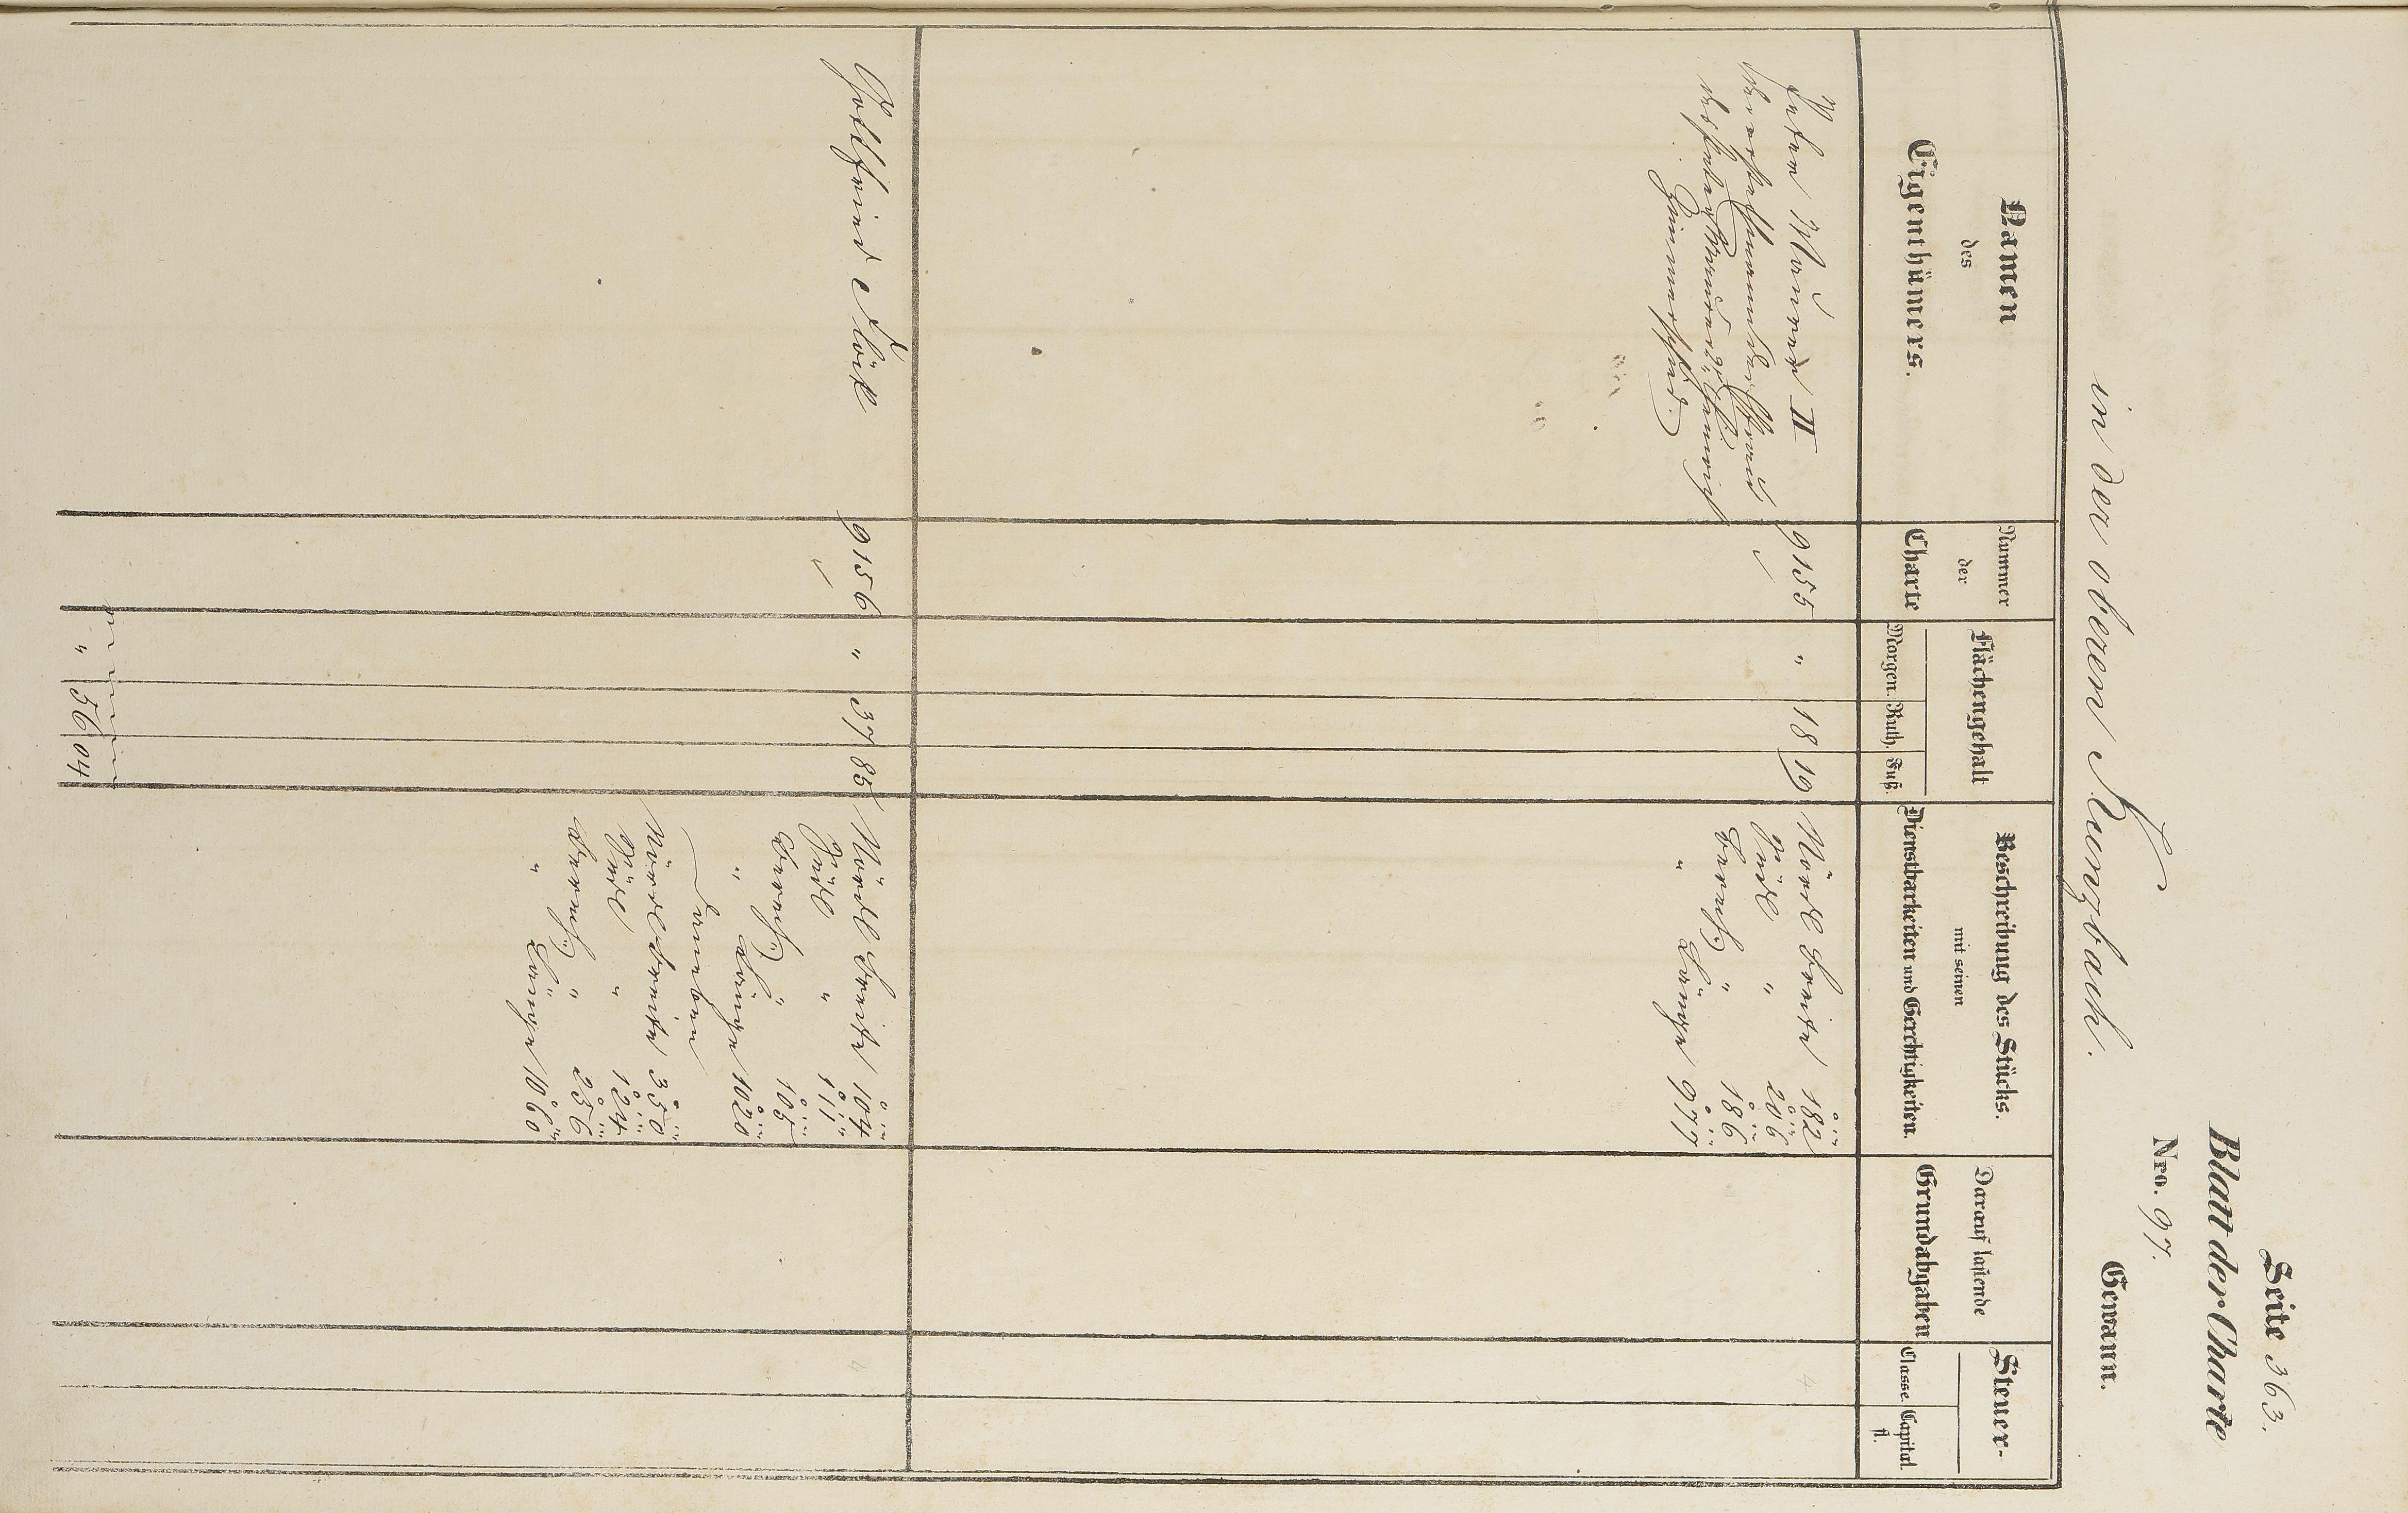 Seite 363.
Blatt der Charte
Nro. 97.
in der oberen Kunzbach. Gewann.
Namen
des
Eigenthümers.
Nummer
der
Charte
Flächengehalt
Morgen. Ruth. Fuß.
Beschreibung des Stücks.
mit seinen
Dienstbarkeiten und Gerechtigkeiten.
Darauf lastende
Grundabgaben
Steuer-
Classe. Capital.
fl.
Peter Maurer II
9155 " 18 19 Nördl Breite 182
Südl " 206
" 186
" Länge 977
4
Gottfried
9156 " 37 85 Nördl Breite 104
Südl " 111
" 105
" Länge 1020
daneben
Nördl Breite 350
Südl " 124
" 236
" Länge 1060
4
" 56 04